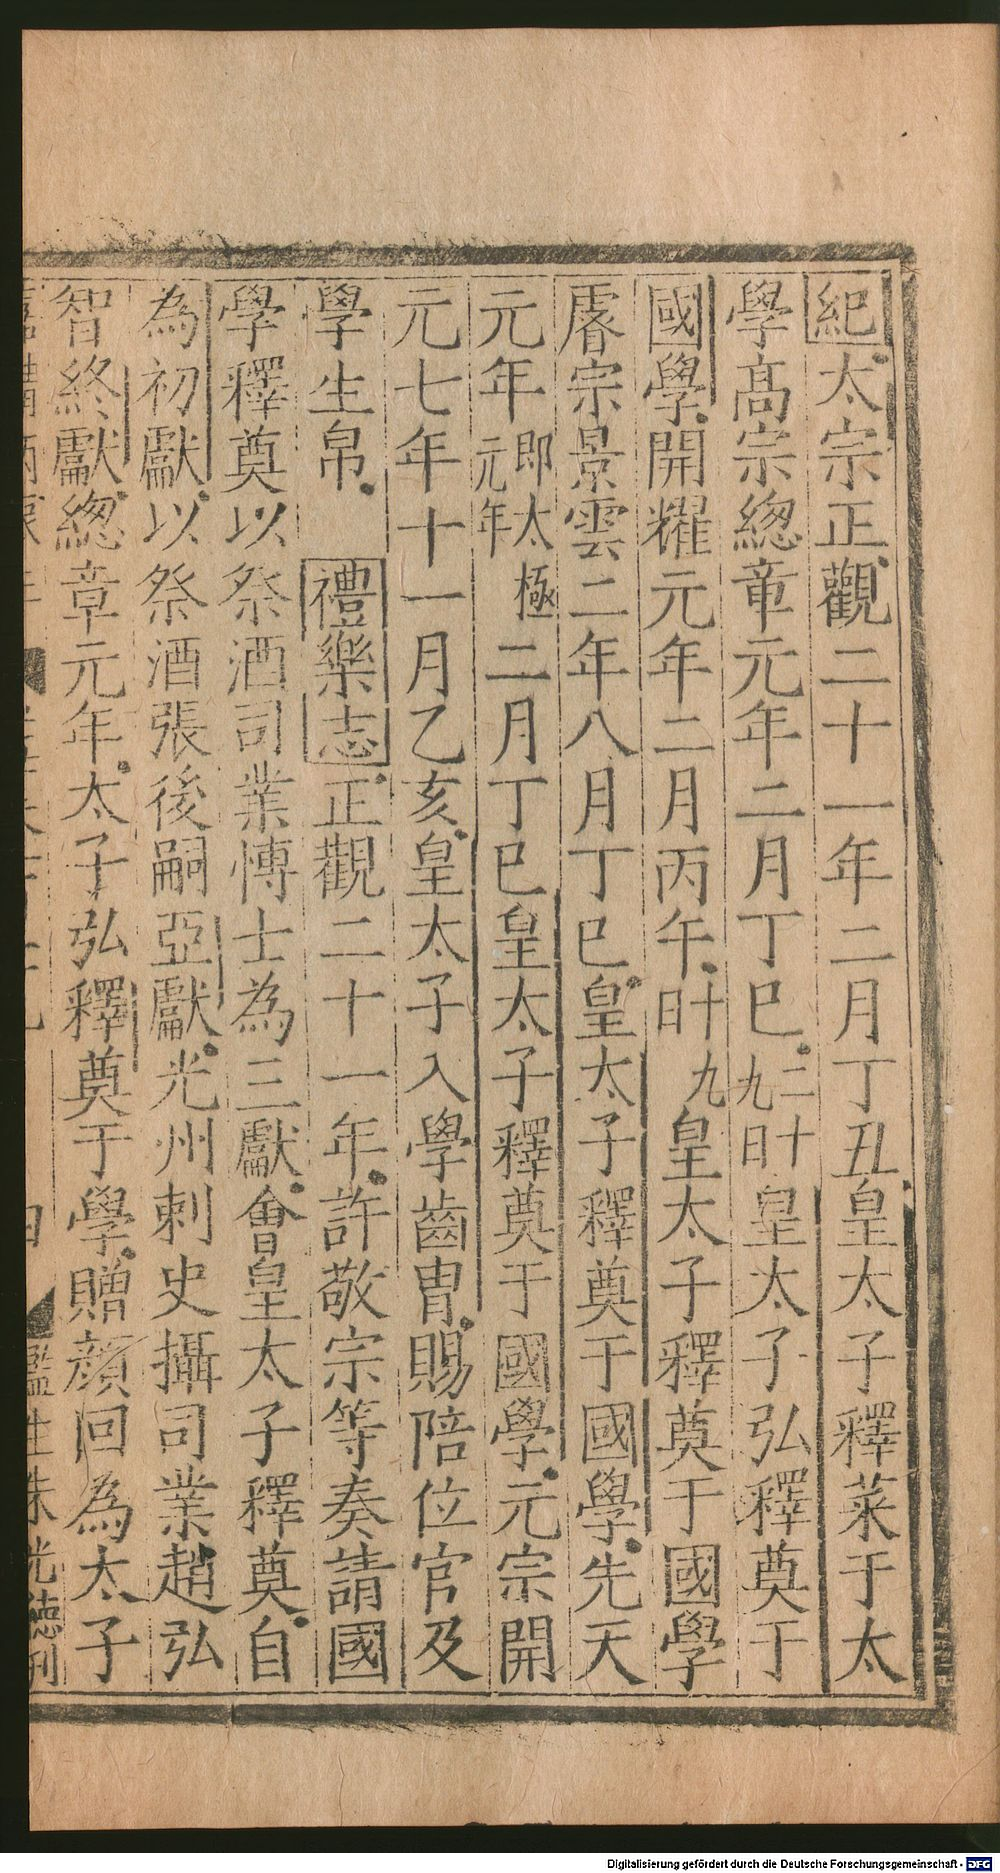 紀太宗正觀二十一年二月丁丑皇太子釋菜于太
學高宗總章元年二月丁巳二十九日皇太子弘釋奠于
國學開耀元年二月丙午十九日皇太子釋奠于國學
睿宗景雲二年八月丁巳皇太子釋奠于國學先天
元年即太極元年二月丁巳皇太子釋奠于國學元宗開
元七年十一月乙亥皇太子入學齒胄賜陪位官及
學生帛禮樂志正觀二十一年許敬宗等奏請國
學釋奠以祭酒司業博士為三獻會皇太子釋奠自
為初獻以祭酒張後嗣亞獻光州刺史攝司業趙弘
智終獻總章元年太子弘釋奠于學贈顏回為太子
監生朱光德刊
Digitalisierung gefördert durch die Deutsche Forschungsgemeinschaft - DFG